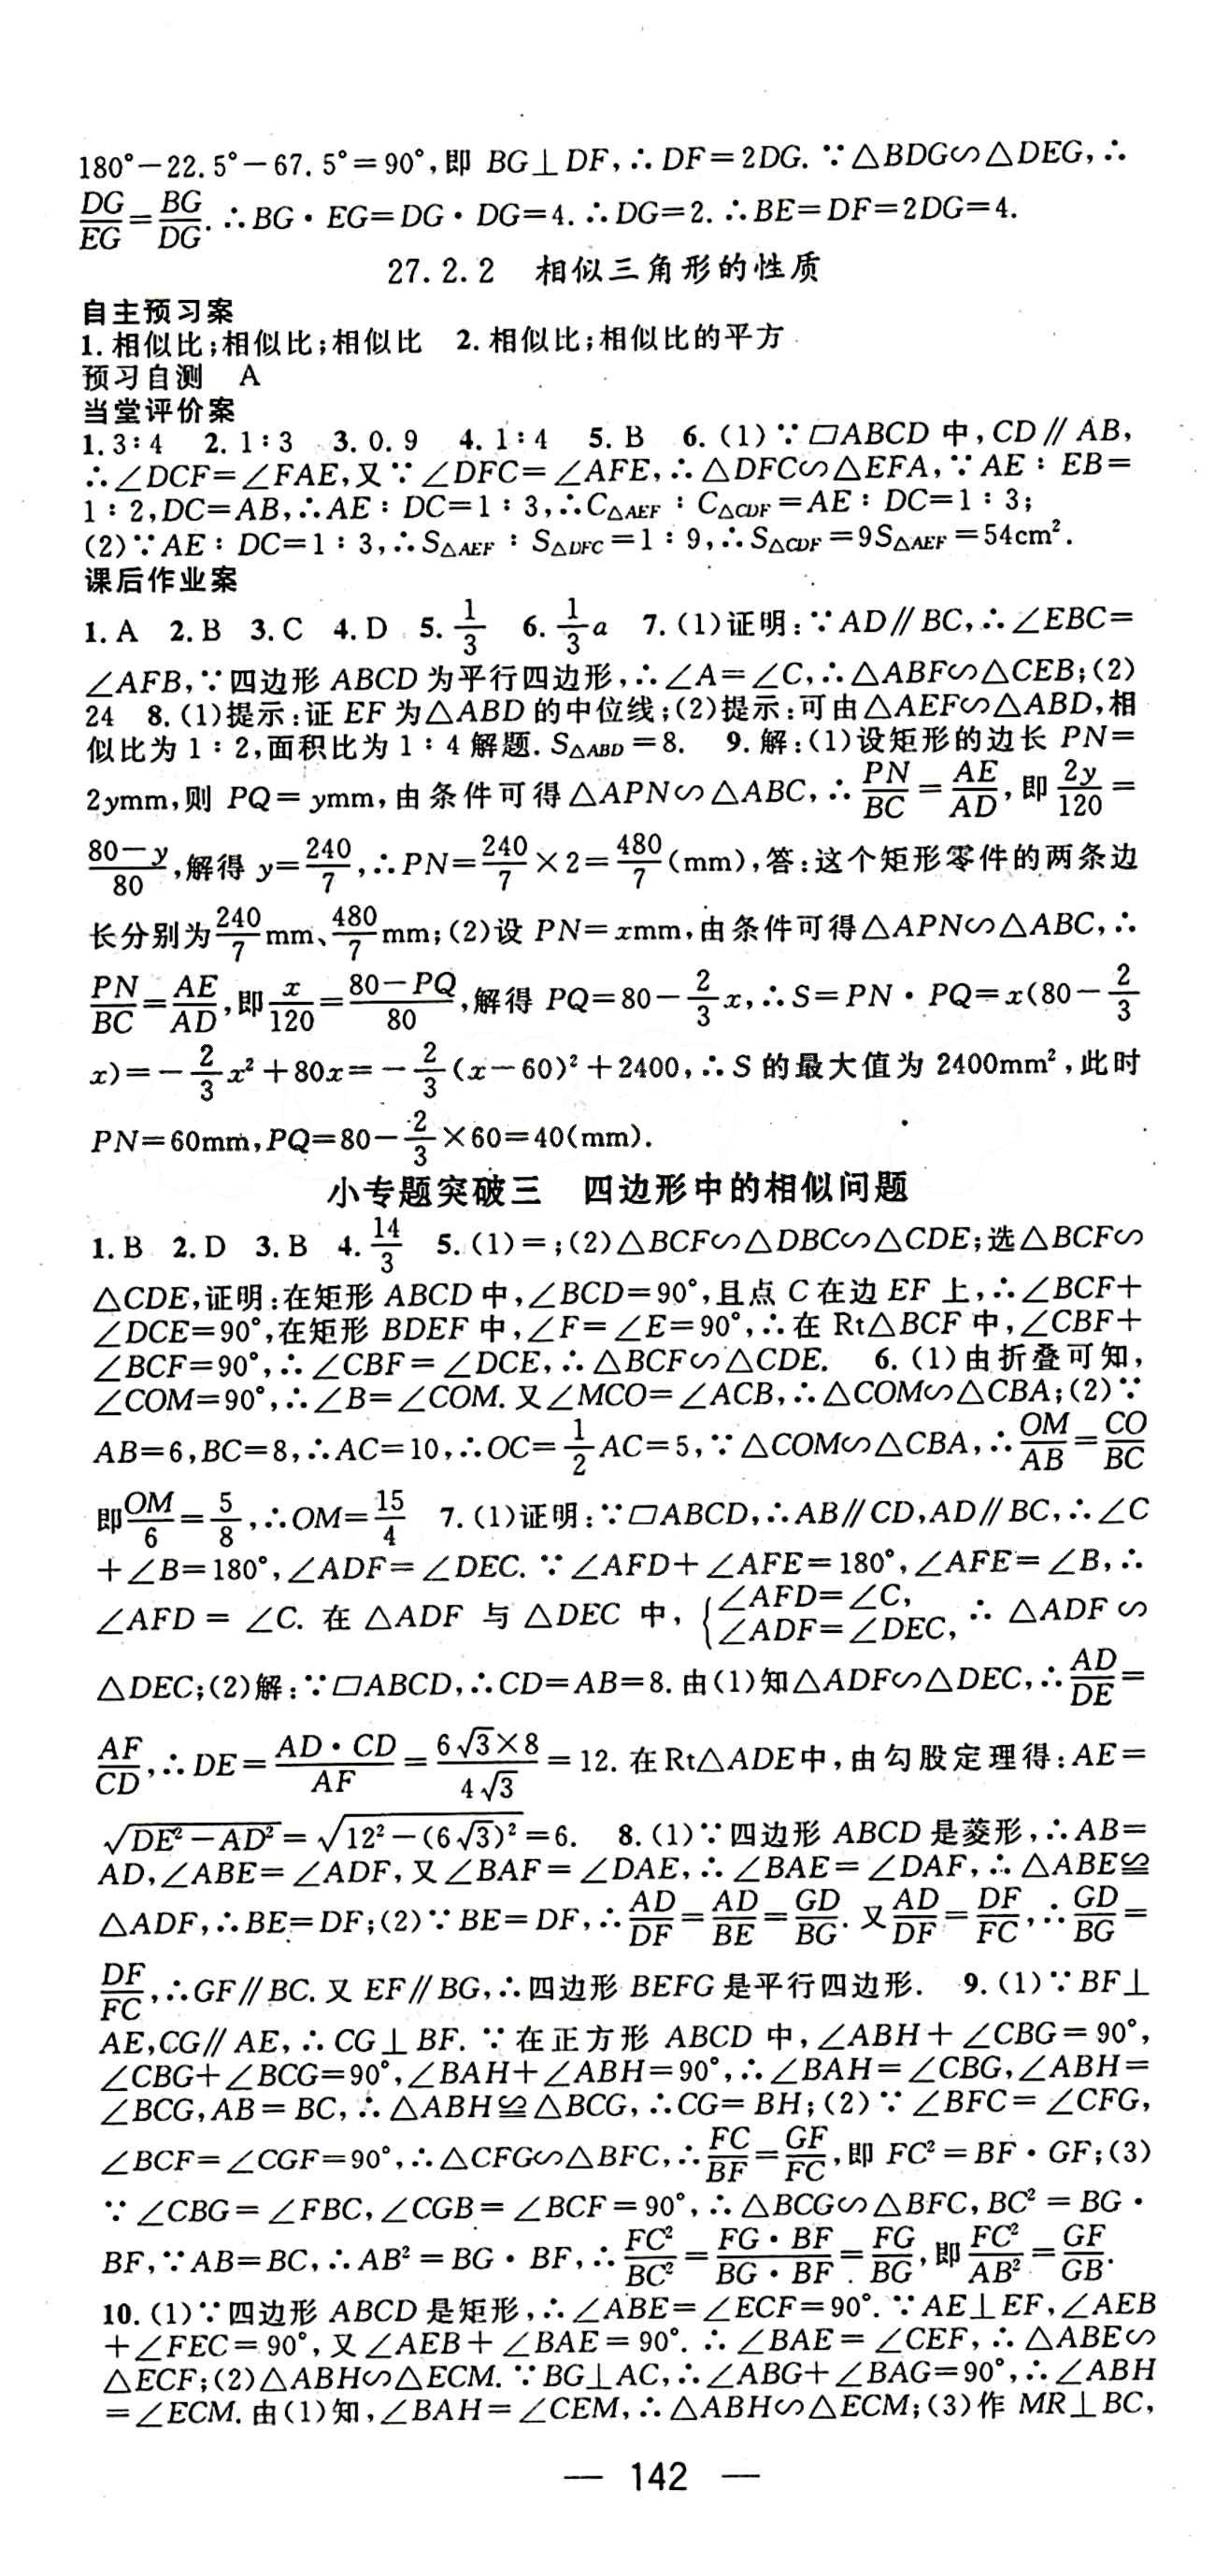 180°－22.5°－67.5°＝90°,即 BG⊥DF,∴DF＝2DG.∵△BDG∽△DEG,∴
DG/EG＝BG/DG.∴BG·EG＝DG·DG＝4.∴DG＝2.∴BE＝DF＝2DG＝4.
27.2.2 相似三角形的性质
自主预习案
1.相似比;相似比;相似比 2.相似比;相似比的平方
预习自测 A
当堂评价案
1.3∶4 2.1∶3 3.0.9 4.1∶4 5.B 6.(1)∵▱ABCD 中,CD∥AB,
∴∠DCF＝∠FAE,又∵∠DFC＝∠AFE,∴△DFC∽△EFA,∵AE∶EB＝
1∶2,DC＝AB,∴AE∶DC＝1∶3,∴C△AEF∶C△CDF＝AE∶DC＝1∶3;
(2)∵AE∶DC＝1∶3,∴S△AEF∶S△DFC＝1∶9,∴S△CDF＝9S△AEF＝54cm².
课后作业案
1.A 2.B 3.C 4.D 5.1/3 6.1/3a 7.(1)证明:∵AD∥BC,∴∠EBC＝
∠AFB,∵四边形 ABCD 为平行四边形,∴∠A＝∠C,∴△ABF∽△CEB;(2)
24 8.(1)提示:证 EF 为△ABD 的中位线;(2)提示:可由△AEF∽△ABD,相
似比为 1∶2,面积比为 1∶4 解题.S△ABD＝8. 9.解:(1)设矩形的边长 PN＝
2ymm,则 PQ＝ymm,由条件可得△APN∽△ABC,∴PN/BC＝AE/AD,即 2y/120＝
(80－y)/80,解得 y＝240/7,∴PN＝240/7×2＝480/7(mm),答:这个矩形零件的两条边
长分别为240/7mm、480/7mm;(2)设 PN＝xmm,由条件可得△APN∽△ABC,∴
PN/BC＝AE/AD,即x/120＝(80－PQ)/80,解得 PQ＝80－2/3x,∴S＝PN·PQ＝x(80－2/3
x)＝－2/3x²＋80x＝－2/3(x－60)²＋2400,∴S 的最大值为 2400mm²,此时
PN＝60mm,PQ＝80－2/3×60＝40(mm).
小专题突破三 四边形中的相似问题
1.B 2.D 3.B 4.14/3 5.(1)＝;(2)△BCF∽△DBC∽△CDE;选△BCF∽
△CDE,证明:在矩形 ABCD 中,∠BCD＝90°,且点 C 在边 EF 上,∴∠BCF＋
∠DCE＝90°,在矩形 BDEF 中,∠F＝∠E＝90°,∴在 Rt△BCF 中,∠CBF＋
∠BCF＝90°,∴∠CBF＝∠DCE,∴△BCF∽△CDE. 6.(1)由折叠可知,
∠COM＝90°,∴∠B＝∠COM.又∠MCO＝∠ACB,∴△COM∽△CBA;(2)∵
AB＝6,BC＝8,∴AC＝10,∴OC＝1/2AC＝5,∵△COM∽△CBA,∴OM/AB＝CO/BC
即OM/6＝5/8,∴OM＝15/4 7.(1)证明:∵▱ABCD,∴AB∥CD,AD∥BC,∴∠C
＋∠B＝180°,∠ADF＝∠DEC.∵∠AFD＋∠AFE＝180°,∠AFE＝∠B,∴
∠AFD＝∠C.在△ADF 与△DEC 中,{∠AFD＝∠C, ∠ADF＝∠DEC,∴△ADF∽
△DEC;(2)解:∵▱ABCD,∴CD＝AB＝8.由(1)知△ADF∽△DEC,∴AD/DE＝
AF/CD,∴DE＝AD·CD/AF＝6√3×8/4√3＝12.在Rt△ADE中,由勾股定理得:AE＝
√(DE²－AD²)＝√(12²－(6√3)²)＝6. 8.(1)∵四边形 ABCD 是菱形,∴AB＝
AD,∠ABE＝∠ADF,又∠BAF＝∠DAE,∴∠BAE＝∠DAF,∴△ABE≌
△ADF,∴BE＝DF;(2)∵BE＝DF,∴AD/DF＝AD/BE＝GD/BG.又AD/DF＝DF/FC,∴GD/BG＝
DF/FC,∴GF∥BC.又 EF∥BG,∴四边形 BEFG 是平行四边形. 9.(1)∵BF⊥
AE,CG∥AE,∴CG⊥BF.∵在正方形 ABCD 中,∠ABH＋∠CBG＝90°,
∠CBG＋∠BCG＝90°,∠BAH＋∠ABH＝90°,∴∠BAH＝∠CBG,∠ABH＝
∠BCG,AB＝BC,∴△ABH≌△BCG,∴CG＝BH;(2)∵∠BFC＝∠CFG,
∠BCF＝∠CGF＝90°,∴△CFG∽△BFC,∴FC/BF＝GF/FC,即 FC²＝BF·GF;(3)
∵∠CBG＝∠FBC,∠CGB＝∠BCF＝90°,∴△BCG∽△BFC,BC²＝BG·
BF,∵AB＝BC,∴AB²＝BG·BF,∴FC²/BC²＝FG·BF/BG·BF＝FG/BG,即FC²/AB²＝GF/GB.
10.(1)∵四边形 ABCD 是矩形,∴∠ABE＝∠ECF＝90°.∵AE⊥EF,∠AEB
＋∠FEC＝90°,又∠AEB＋∠BAE＝90°.∴∠BAE＝∠CEF,∴△ABE∽
△ECF;(2)△ABH∽△ECM.∵BG⊥AC,∴∠ABG＋∠BAG＝90°,∴∠ABH
＝∠ECM.由(1)知,∠BAH＝∠CEM,∴△ABH∽△ECM;(3)作 MR⊥BC,
— 142 —